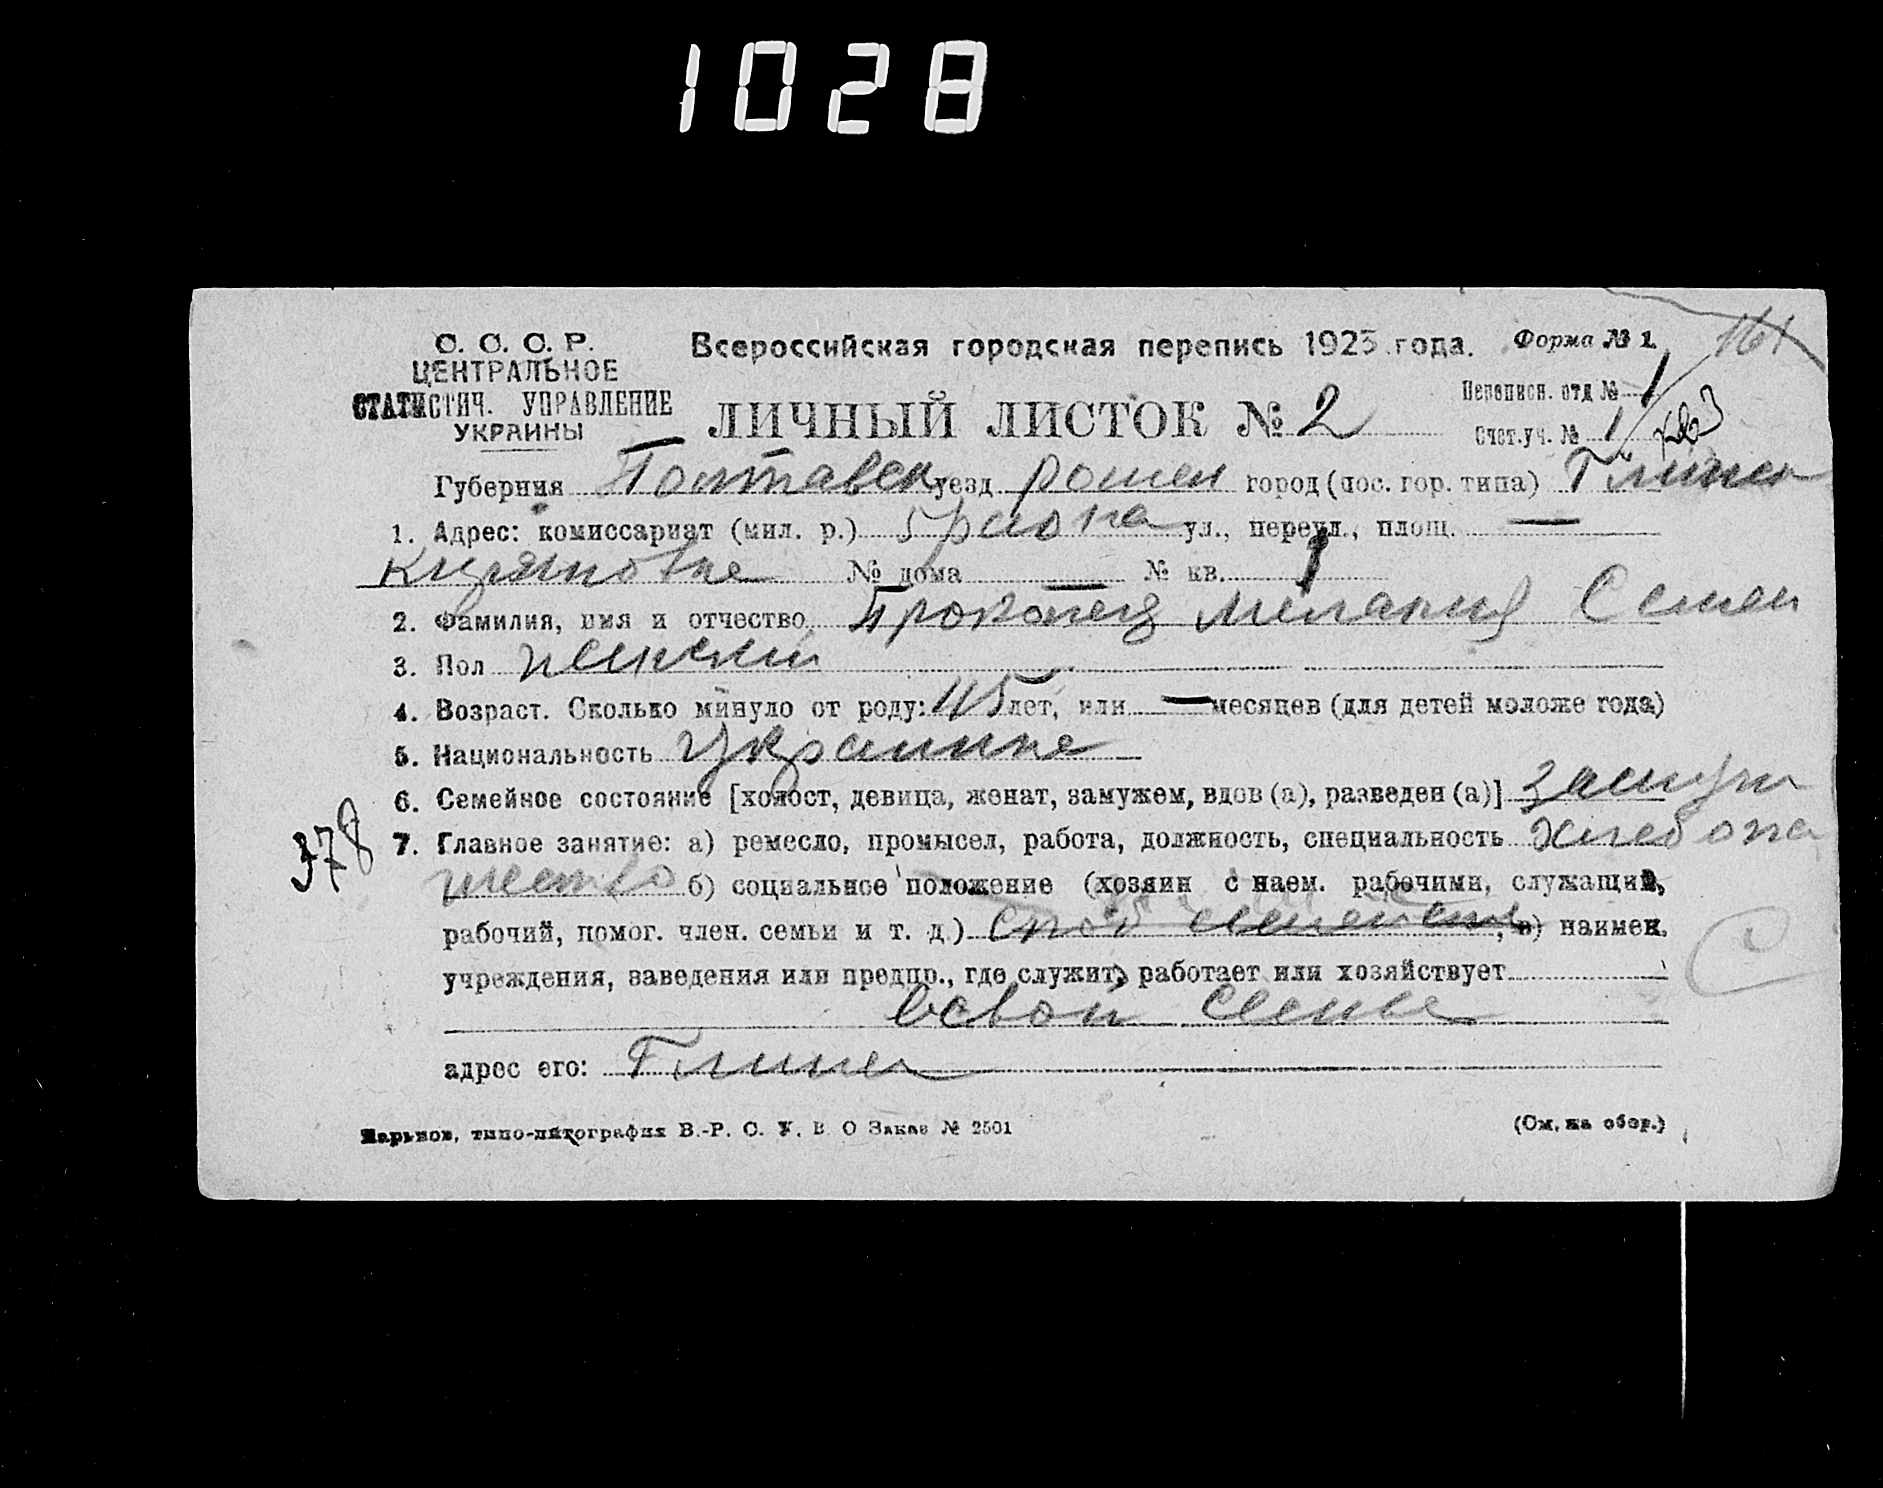 1028
С. С. С. Р.
ЦЕНТРАЛЬНОЕ
СТАТИСТИЧ. УПРАВЛЕНИЕ
УКРАИНЫ
Всероссийская городская перепись 1923 года.
Форма № 1.
161
ЛИЧНЫЙ ЛИСТОК № 2
Переписн. отд № 1
Счет.уч. № 1
Губерния Полтавск уезд ромен город (пос. гор. типа) Глинск
1. Адрес: комиссариат (мил. р.) 5 раиона ул., переул., площ. —
№ дома — № кв.
2. Фамилия, имя и отчество Прокопец Мелания Семен
3. Пол женский
4. Возраст. Сколько минуло от роду: 45 лет, или — месяцев (для детей моложе года)
5. Национальность Украинка
6. Семейное состояние [холост, девица, женат, замужем, вдов (а), разведен (а)] замуж
378
7. Главное занятие: а) ремесло, промысел, работа, должность, специальность хлебопа
шество б) социальное положение (хозяин с наем. рабочими, служащий,
рабочий, помог. член. семьи и т. д.) , в) наимен.
учреждения, заведения или предпр., где служит, работает или хозяйствует
в своей семье
адрес его: Глинск
Харьков, типо-литография В.-Р. С. У. В. О Заказ № 2501
(См. на обор.)